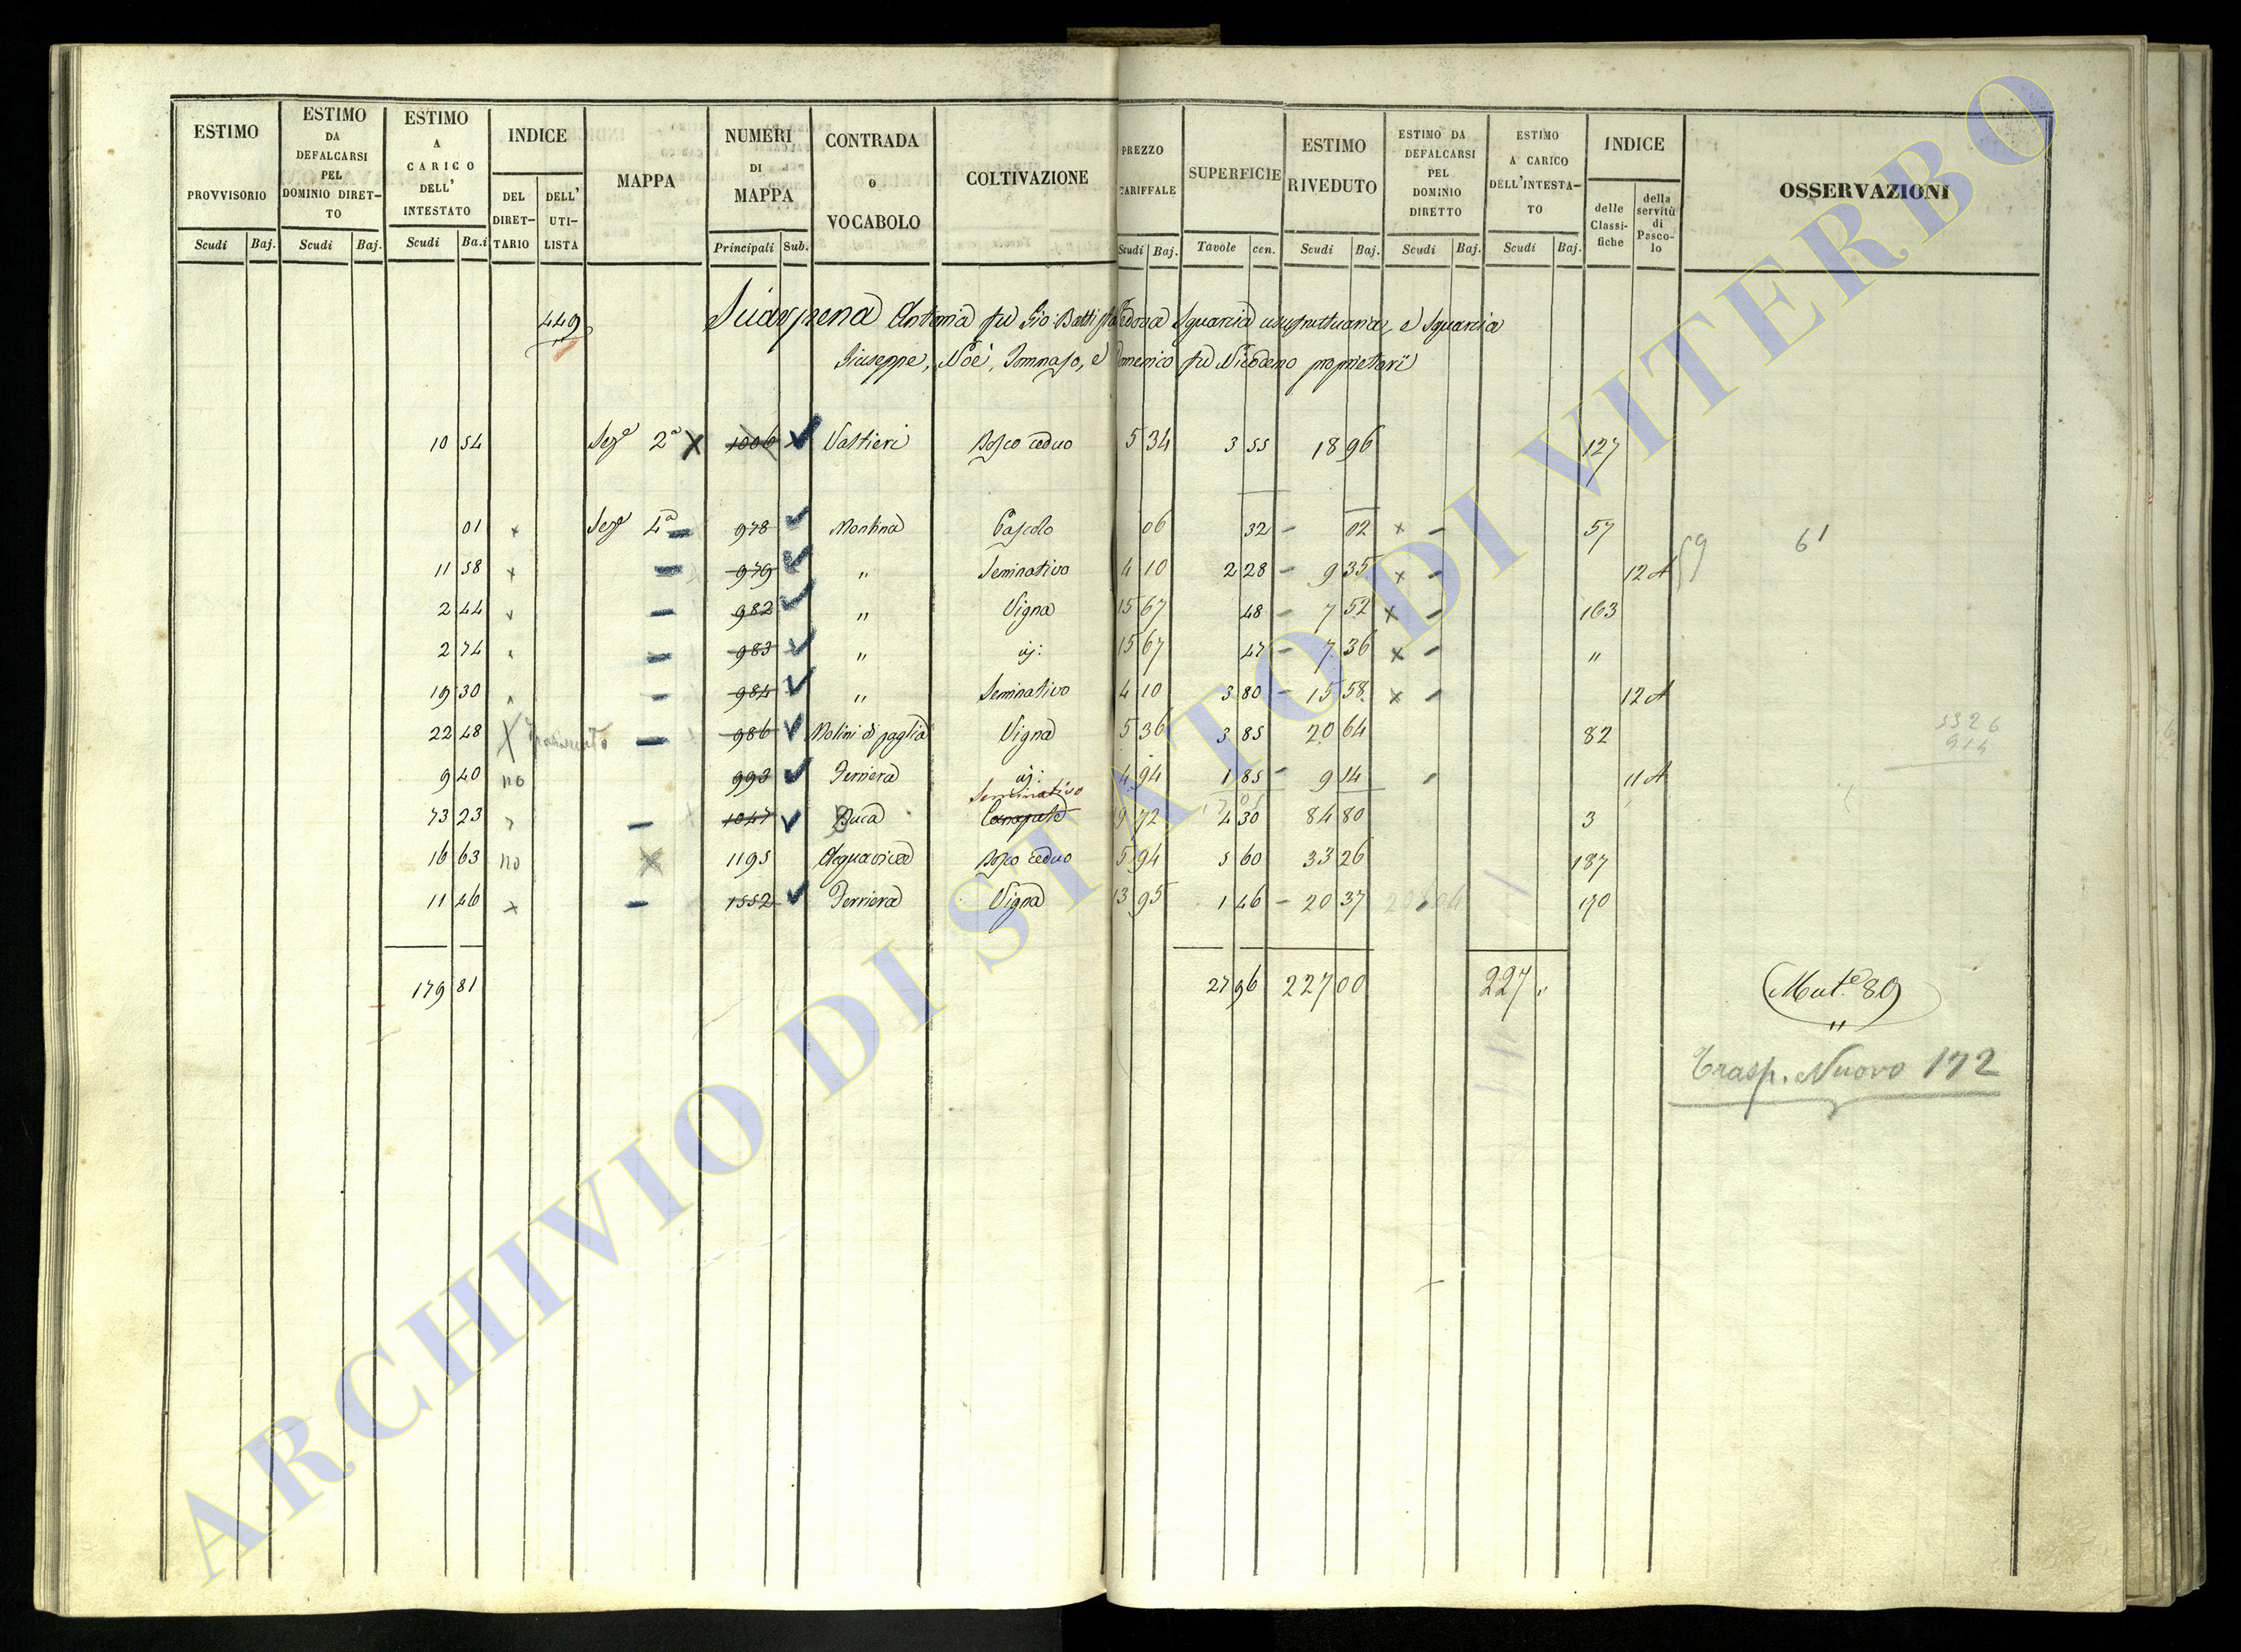 ESTIMO PROVVISORIO Scudi Baj.
ESTIMO DA DEFALCARSI PEL DOMINIO DIRET-TO Scudi Baj.
ESTIMO A CARICO DELL' INTESTATO Scudi Ba.i
INDICE DEL DIRET-TARIO DELL' UTI-LISTA
MAPPA
NUMERI DI MAPPA Principali Sub.
CONTRADA o VOCABOLO
COLTIVAZIONE
PREZZO TARIFFALE Scudi Baj.
SUPERFICIE Tavole cen.
ESTIMO RIVEDUTO Scudi Baj.
ESTIMO DA DEFALCARSI PEL DOMINIO DIRETTO Scudi Baj.
ESTIMO A CARICO DELL'INTESTA-TO Scudi Baj.
INDICE delle Classi-fiche della servitù di Pasco-lo
OSSERVAZIONI
449 Antonia fu Gio: Battista Vedova Sguarcia usufruttuaria, e Sguarcia
Giuseppe, Noè, Tommaso, e Domenico fu Nicodemo proprietarii
10 54 Sez.e 2a X 1006 Valtieri Bosco ceduo 5 34 3 55 18 96 127
01 x Sez.e 4a 978 Montina Pascolo 06 32 02 x 57 59 61
11 58 x 979 " Seminativo 4 10 2 28 9 35 x 12 A
2 44 982 " Vigna 15 67 48 7 52 x 163
2 74 983 " id: 15 67 47 7 36 x "
19 30 984 " Seminativo 4 10 3 80 15 58 x 12 A
22 48 X 986 Molini di paglia Vigna 5 36 3 85 20 64 82 3326
914
9 40 no 993 Ferriera id: 4 94 1 85 9 14 11 A
Seminativo
73 23 1047 Buca Canapule 19 72 4 30 84 80 3
16 63 no X 1195 Acquaviva Bosco ceduo 5 94 5 60 33 26 187
11 46 x 1552 Ferriera Vigna 13 95 1 46 20 37 170
179 81 27 96 227 00 227 "
Mut.e 80
"
Trasp. Nuovo 172
ARCHIVIO DI STATO DI VITERBO